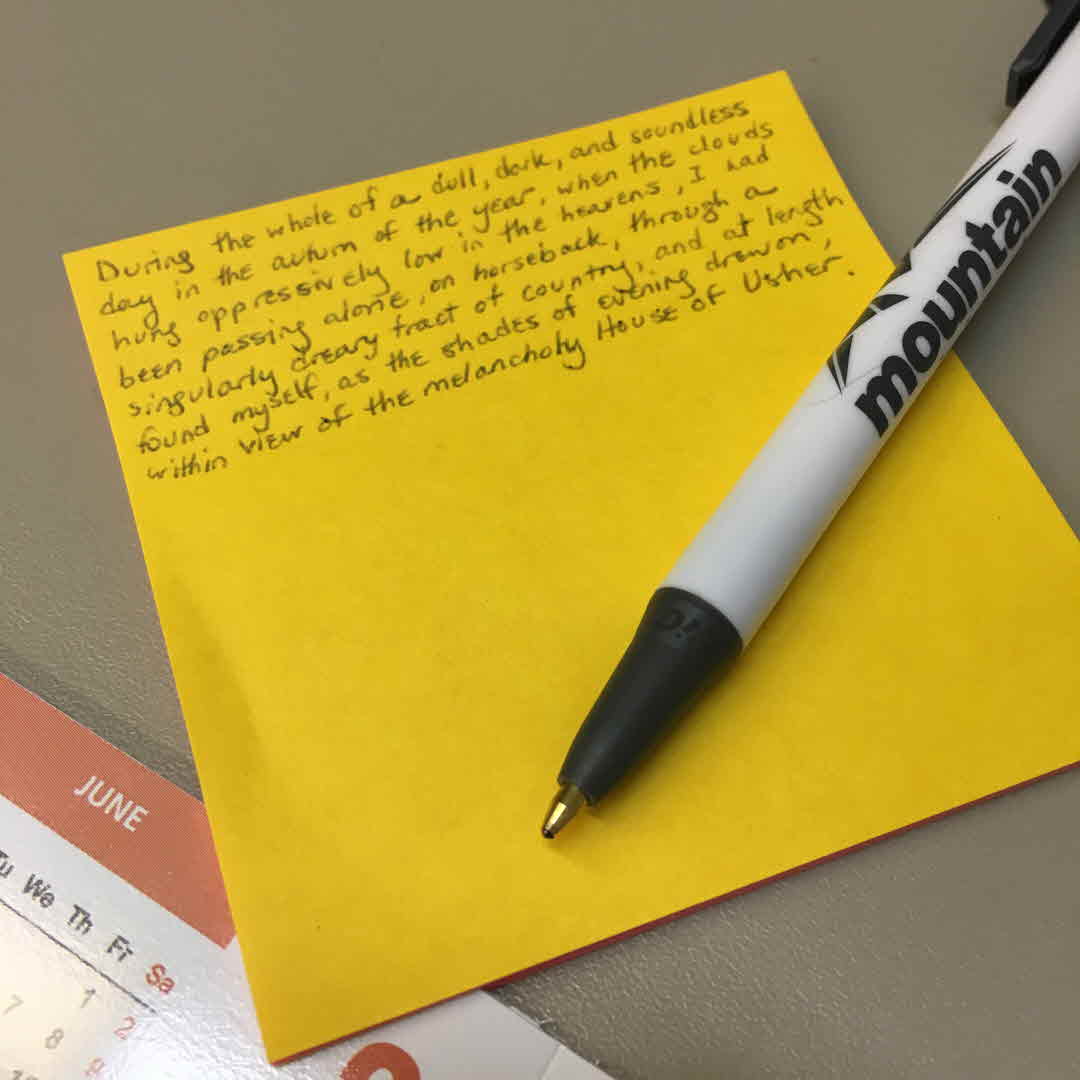 During the whole of a dull, dark, and soundless
day in the autumn of the year, when the clouds
hung oppressively low in the heavens, I had
been passing alone, on horseback, through a
singularly dreary tract of country, and at length
found myself, as the shades of evening drew on,
within view of the melancholy House of Usher.
mountain
JUNE
Tu We Th Fr Sa
1 2
7 8 9